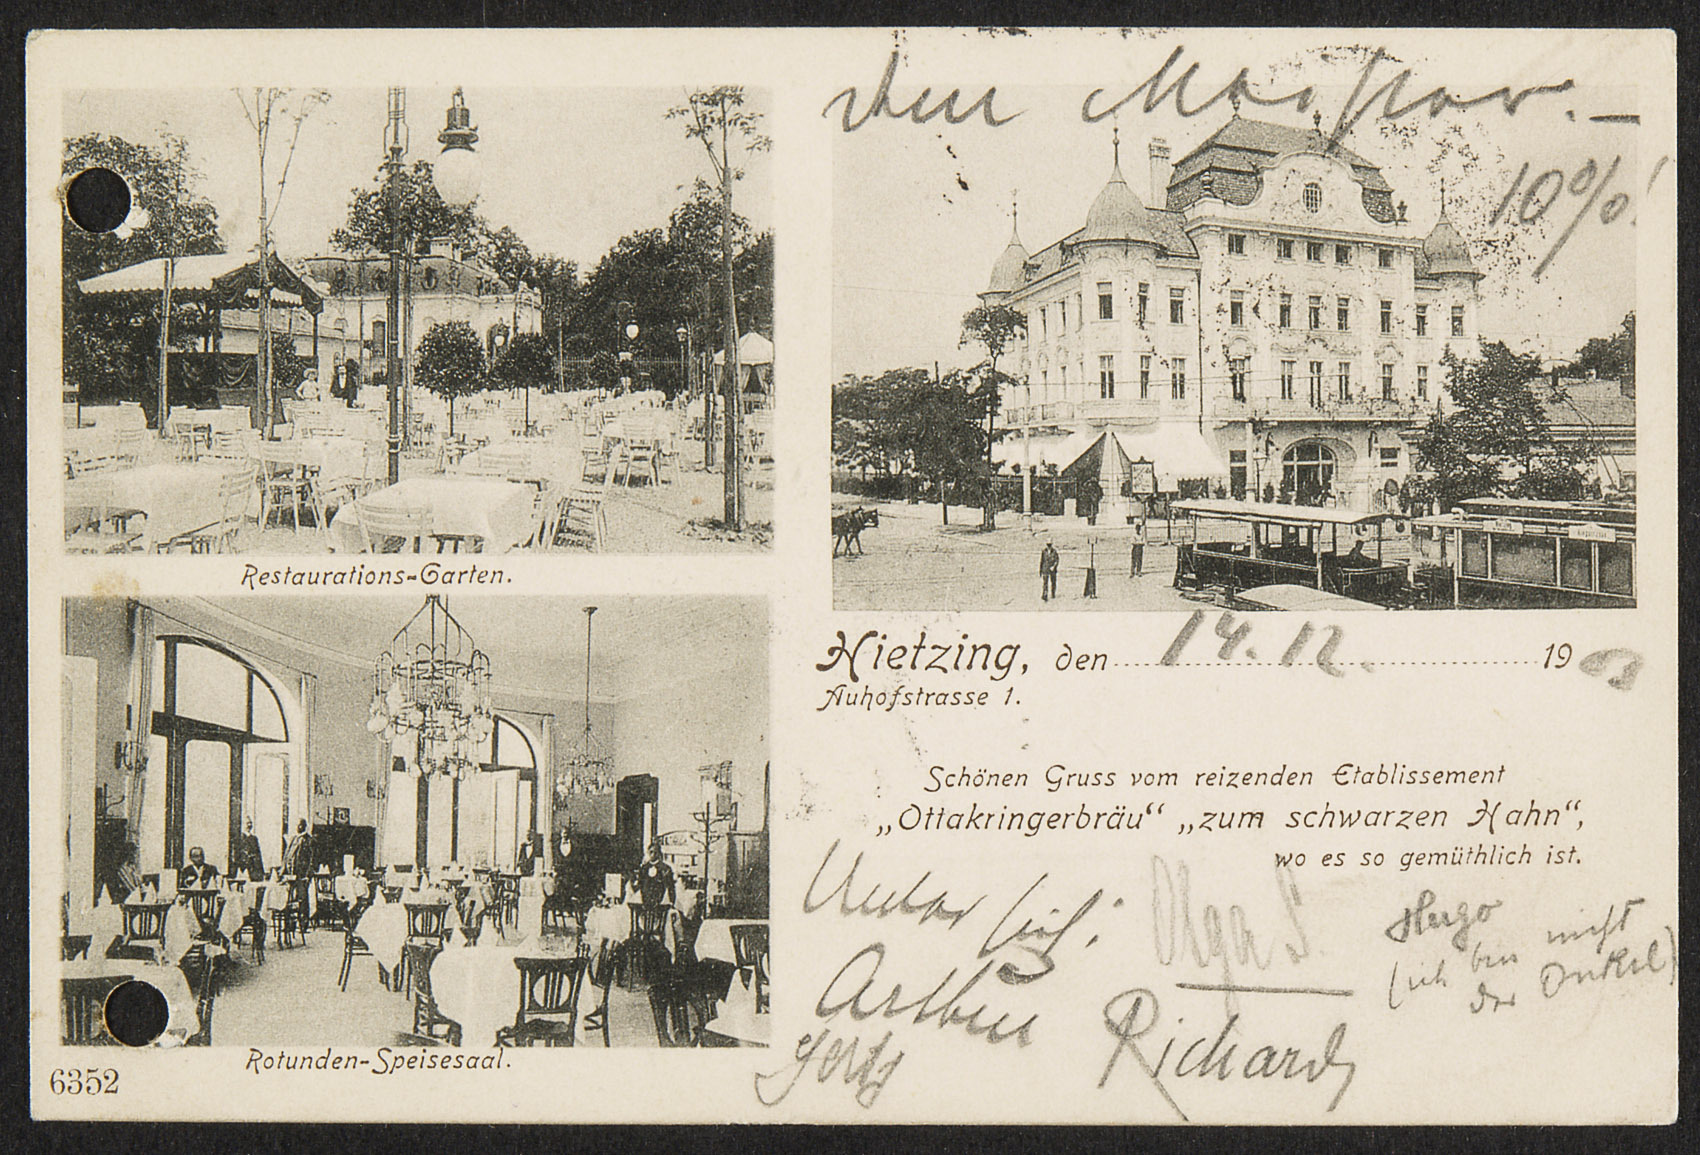 Dem Meister. —
10%!
Restaurations-Garten.
Hietzing, den 14. 12. 1903
Auhofstrasse 1.
Schönen Gruss vom reizenden Etablissement
„Ottakringerbräu“ „zum schwarzen Hahn“,
wo es so gemüthlich ist.
Rotunden-Speisesaal.
6352
Olga S.
Hugo
(ich bin nicht
der Onkel)
Arthur
Richard